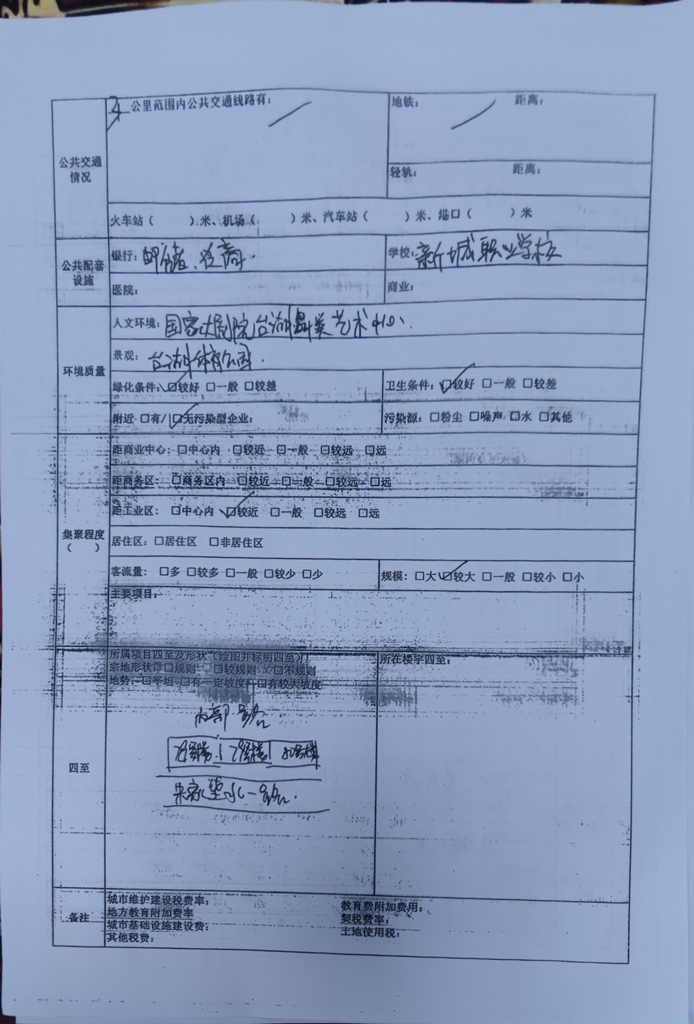 公里范围内公共交通线路有：
地铁： 距离：
公共交通情况
轻轨： 距离：
火车站（ ）米、机场（ ）米、汽车站（ ）米、港口（ ）米
公共配套设施
银行：邮储、 学校：新城职业学校
医院： 商业：
环境质量
人文环境：国家大剧院台湖舞美艺术中心
景观：台湖体育公园
绿化条件：☑较好 □一般 □较差 卫生条件：☑较好 □一般 □较差
附近 □有/☑无污染型企业： 污染源：□粉尘 □噪声 □水 □其他
集聚程度（ ）
距商业中心：□中心内 □较近 □一般 □较远 □远
距商务区：□商务区内 □较近 □一般 □较远 □远
距工业区：□中心内 ☑较近 □一般 □较远 □远
居住区：□居住区 □非居住区
客流量：□多 □较多 □一般 □较少 □少 规模：□大 ☑较大 □一般 □较小 □小
主要项目：
四至
所属项目四至及形状（绘图并标明四至）： 所在楼宇四至：
宗地形状：□规则 □较规则 □不规则
地势：□平坦 □有一定坡度 □有较大坡度
内部
备注
城市维护建设税费率： 教育费附加费用：
地方教育附加费率 契税费率：
城市基础设施建设费： 土地使用税：
其他税费：